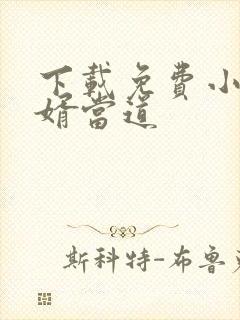 下载免费小
婿当道
斯科特-布鲁